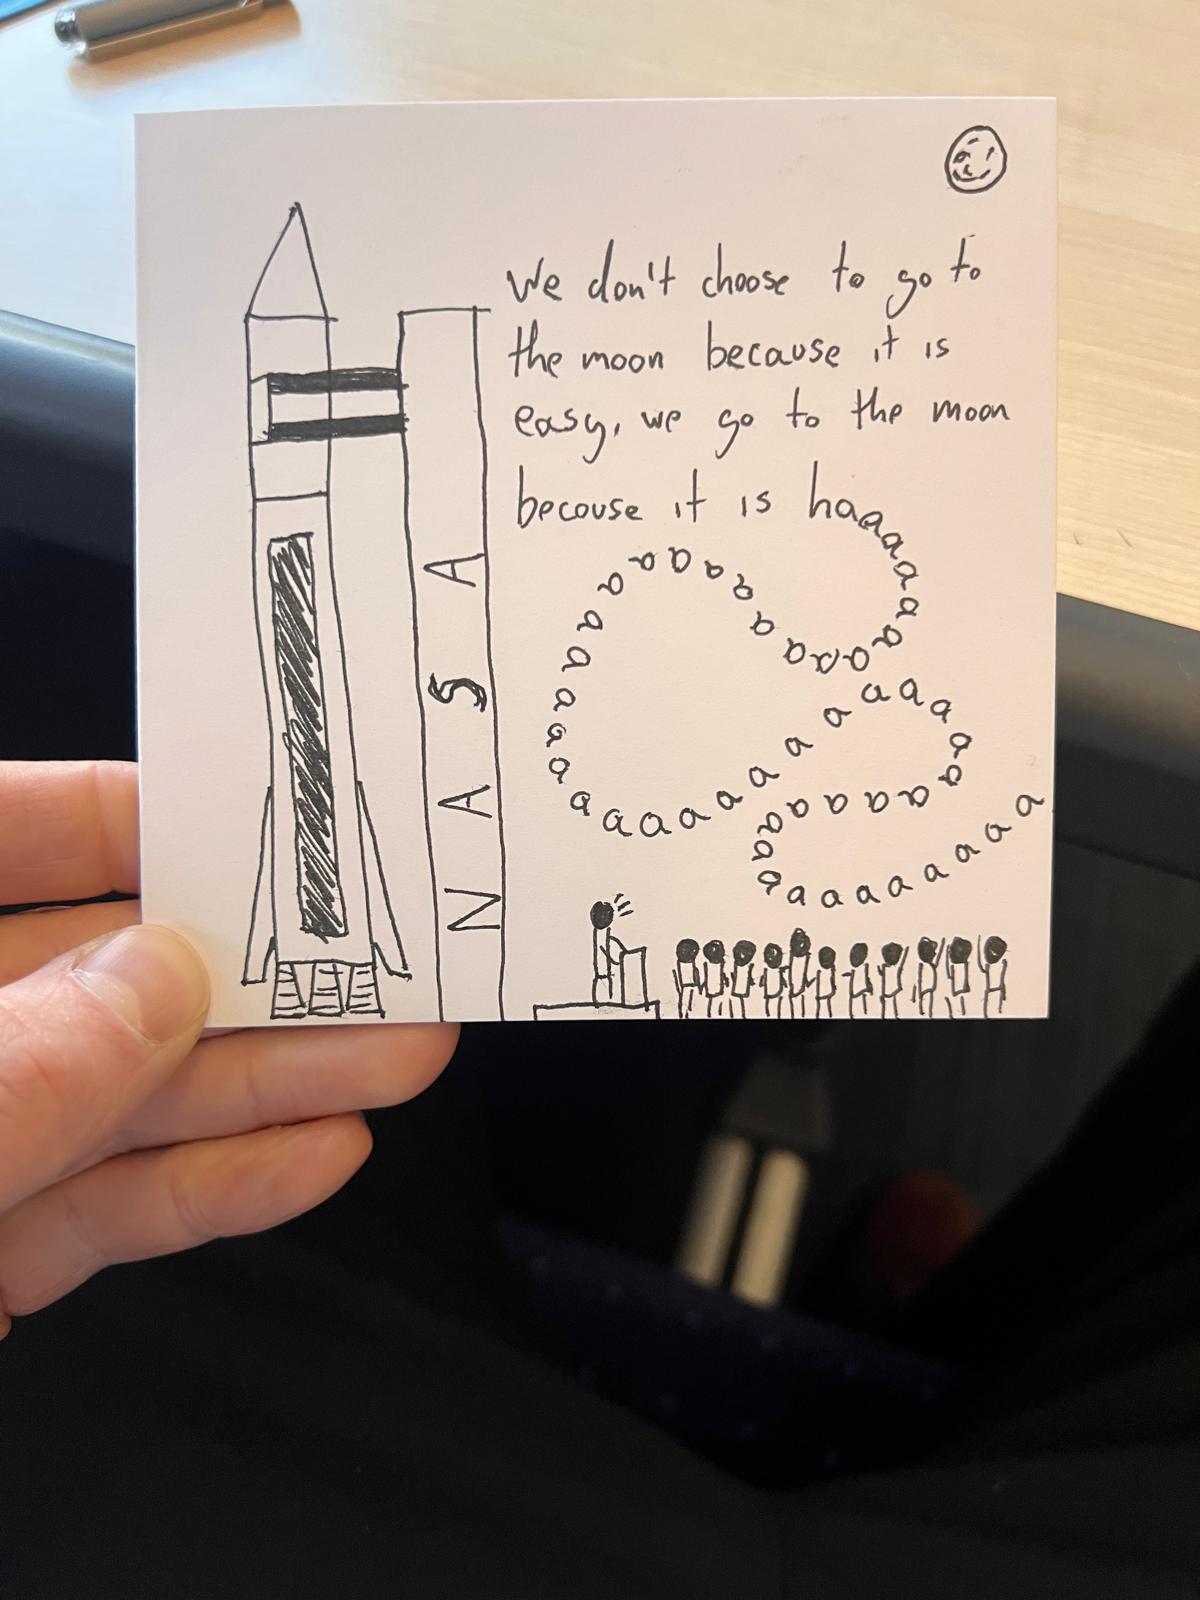 We don't choose to go to
the moon because it is
easy, we go to the moon
becouse it is haaaaaaaaaaaaaaaaaaaaaaaaaaaaaaaaaaaaaaaaaaaaaaaa
NASA